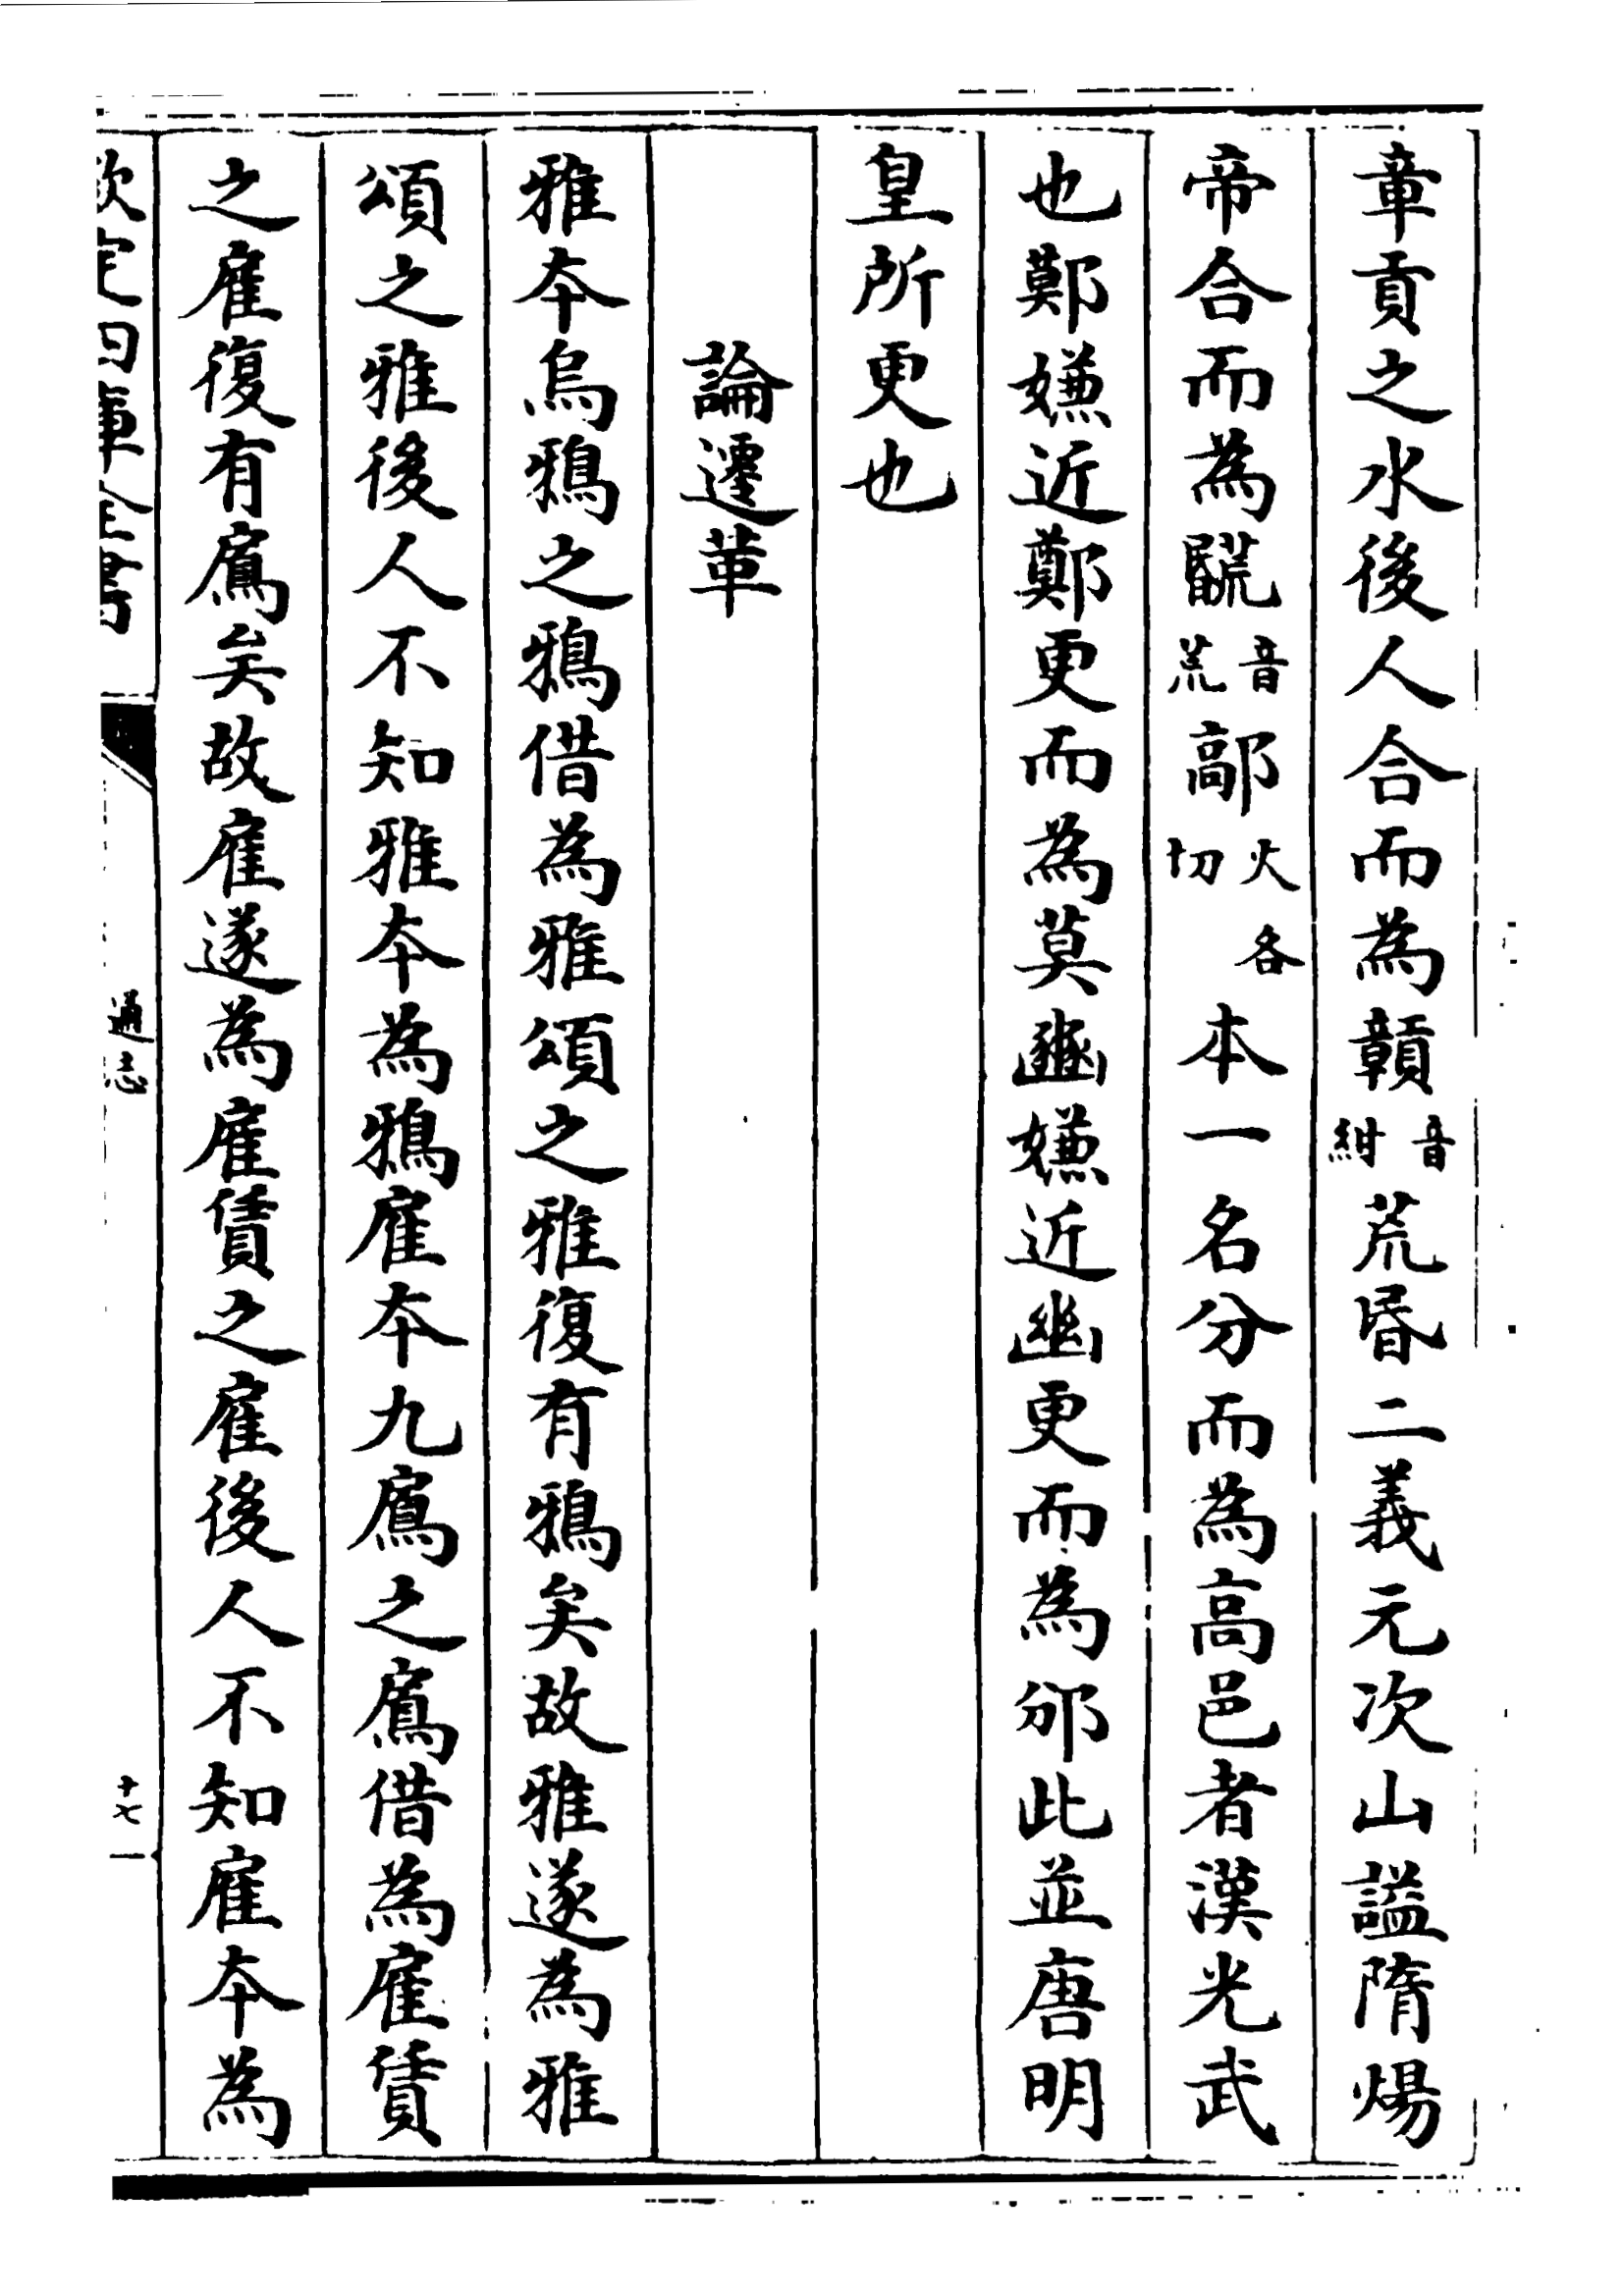 章貢之水後人合而為贑音紺荒昬二義元次山謚隋煬
帝合而為音荒鄗火各切本一名分而為高邑者漢光武
也鄚嫌近鄭更而為莫豳嫌近幽更而為邠此並唐明
皇所更也
論遷革
雅本烏鴉之鴉借為雅頌之雅復有鴉矣故雅遂為雅
頌之雅後人不知雅本為鴉雇本九鳸之鳸借為雇賃
之雇復有鳸矣故雇遂為雇賃之雇後人不知雇本為
欽定四庫全書
通志
十七